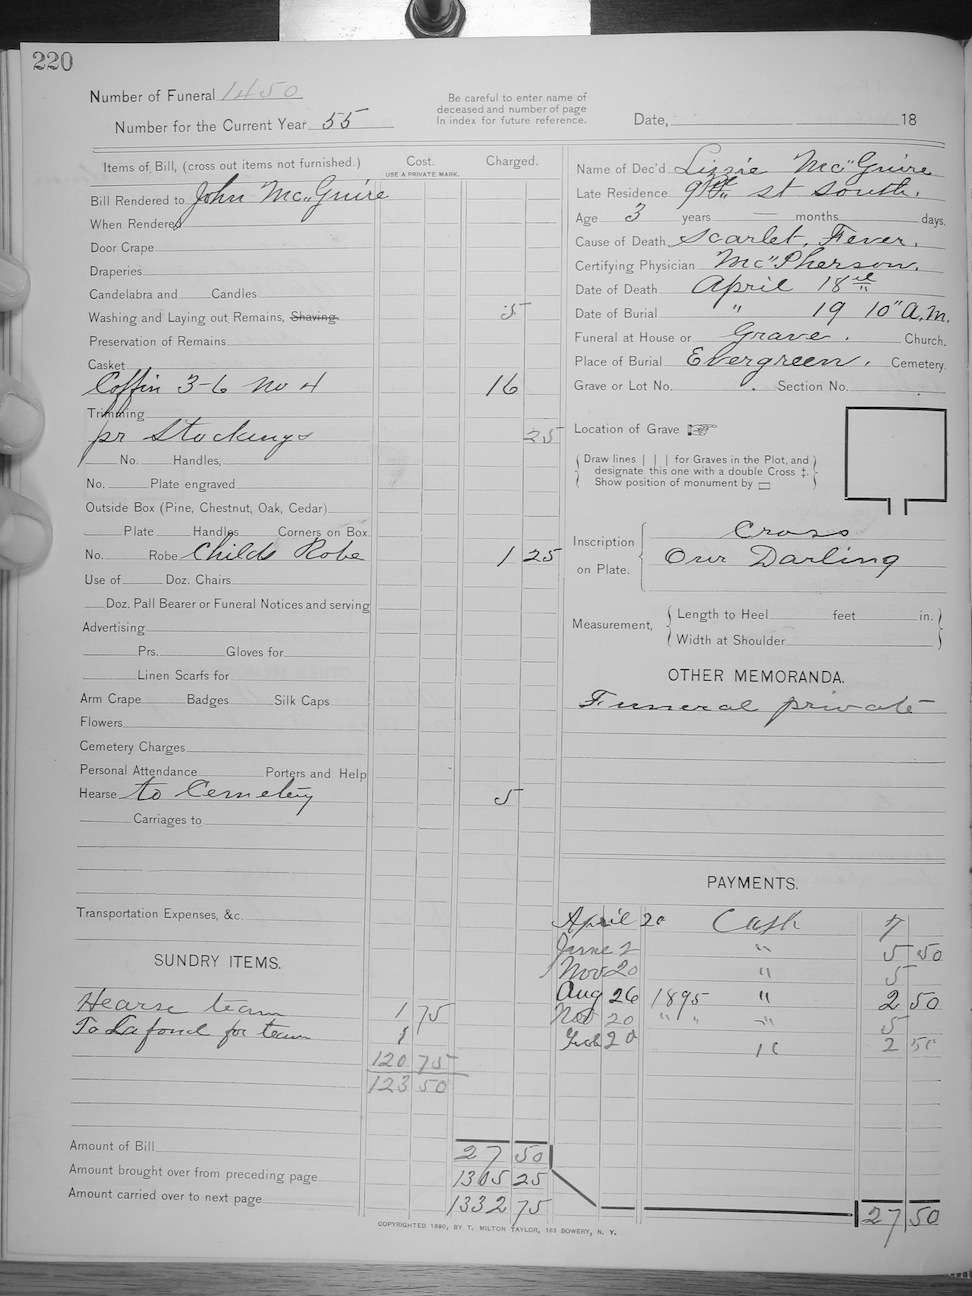 220
Number of Funeral 1450
Number for the Current Year 55
Be careful to enter name of
deceased and number of page
In index for future reference.
Date, 18
Items of Bill, (cross out items not furnished.) Cost. Charged.
USE A PRIVATE MARK.
Bill Rendered to John Mc"Guire
When Rendered
Door Crape
Draperies
Candelabra and Candles
Washing and Laying out Remains, Shaving 5
Preservation of Remains
Casket
Coffin 3-6 No 4 16
Trimming
pr Stockings 25
No. Handles,
No. Plate engraved
Outside Box (Pine, Chestnut, Oak, Cedar)
Plate Handles Corners on Box
No. Robe Childs Robe 1 25
Use of Doz. Chairs
Doz. Pall Bearer or Funeral Notices and serving
Advertising
Prs. Gloves for
Linen Scarfs for
Arm Crape Badges Silk Caps
Flowers
Cemetery Charges
Personal Attendance Porters and Help
Hearse to Cemetery 5
Carriages to
Transportation Expenses, &c.
SUNDRY ITEMS.
Hearse team 1 75
To Lafond for team 1
120 75
123 50
Amount of Bill 27 50
Amount brought over from preceding page 1305 25
Amount carried over to next page 1332 75
Name of Dec'd Lizzie Mc"Guire
Late Residence 9th st South.
Age 3 years — months days.
Cause of Death Scarlet. Fever.
Certifying Physician Mc"Pherson.
Date of Death April 18th
Date of Burial " 19 10" A.M.
Funeral at House or Grave. Church.
Place of Burial Evergreen. Cemetery.
Grave or Lot No. Section No.
Location of Grave
Draw lines | | | for Graves in the Plot, and
designate this one with a double Cross ‡.
Show position of monument by ▭
Inscription on Plate. Cross
Our Darling
Measurement, Length to Heel feet in.
Width at Shoulder
OTHER MEMORANDA.
Funeral private
PAYMENTS.
April 20 Cash 7
June 2 " 5 50
Nov 20 " 5
Aug 26 1895 " 2 50
Nov 20 " " " 5
20 2 50
27 50
COPYRIGHTED 1890, BY T. MILTON TAYLOR, 163 BOWERY, N. Y.